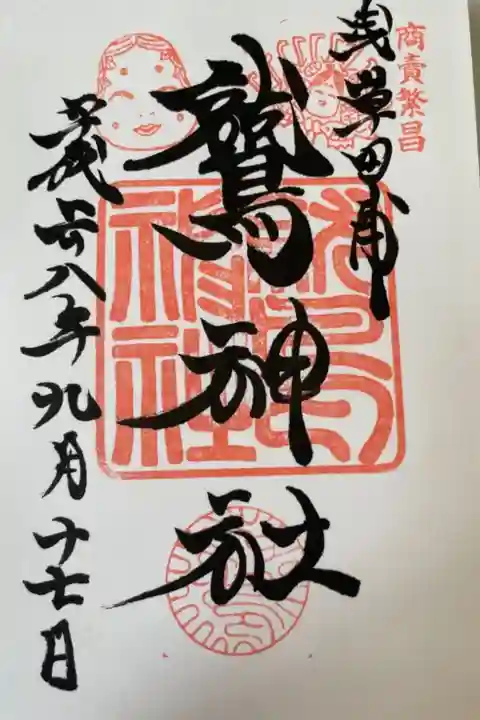 商売繁昌
浅草田甫
鷲神社
鷲神社
平成廿八年九月十七日